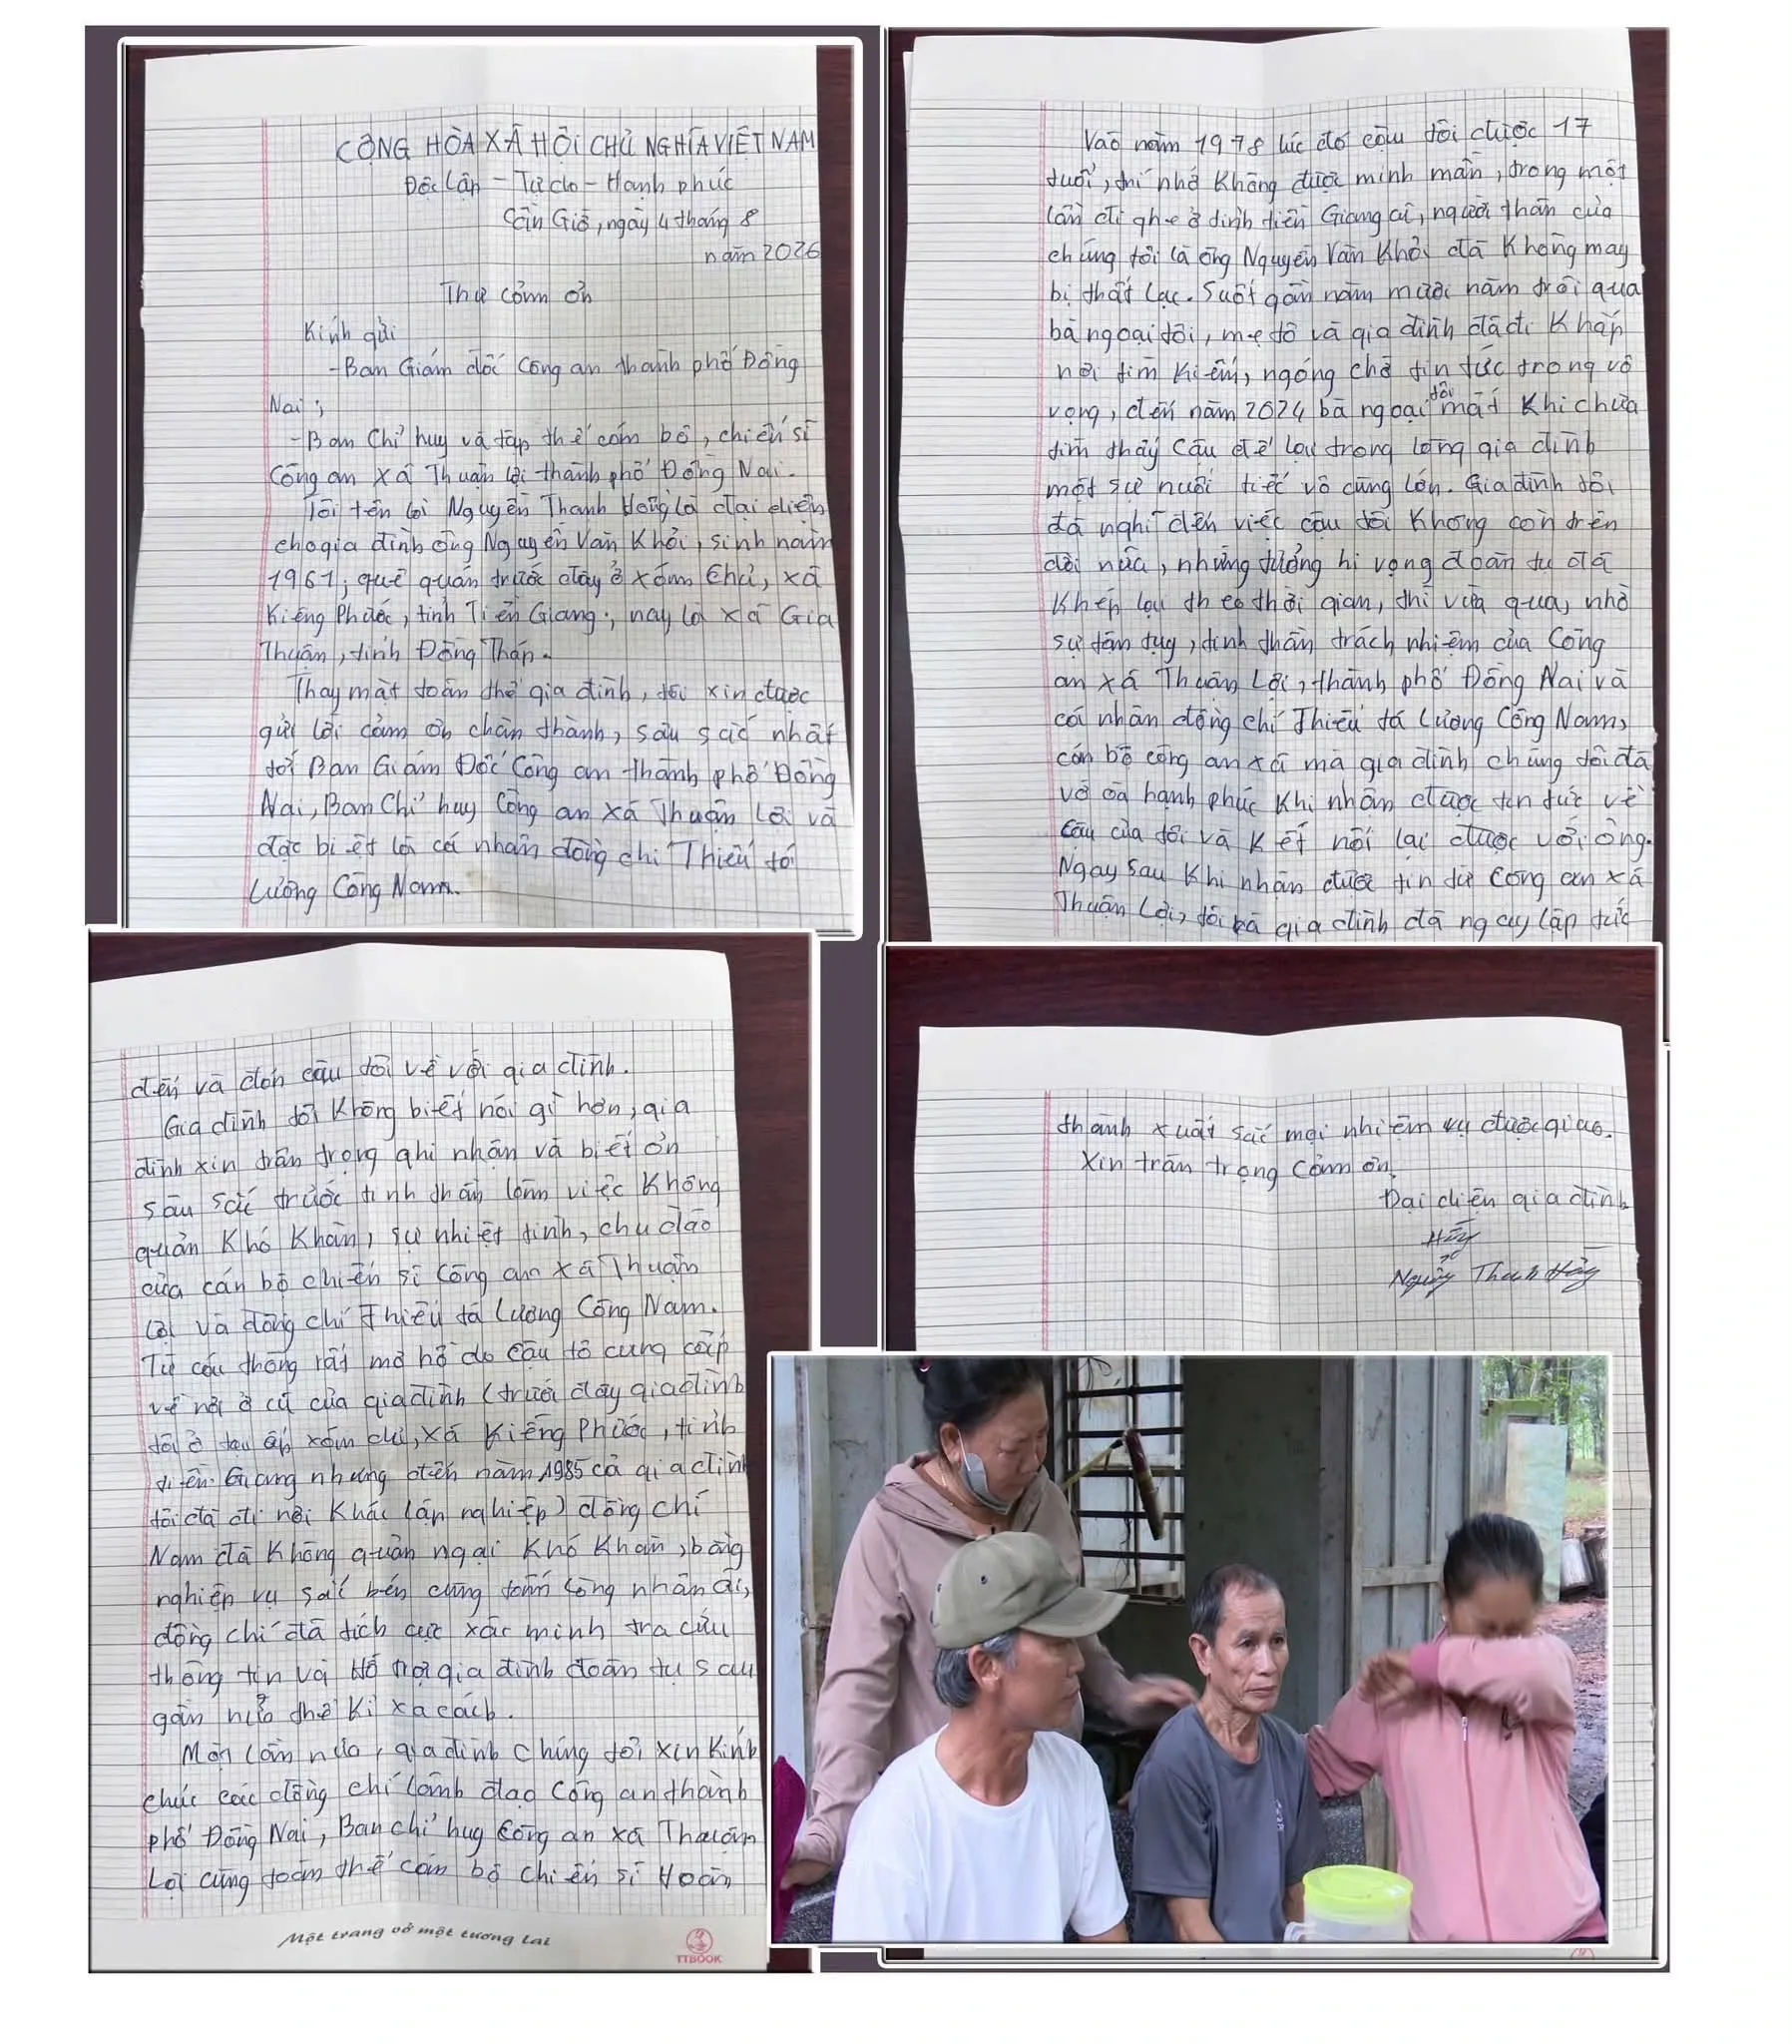 CỘNG HÒA XÃ HỘI CHỦ NGHĨA VIỆT NAM
Độc lập - Tự do - Hạnh phúc
Cần Giờ, ngày 4 tháng 8
năm 2026
Thư cảm ơn
Kính gửi
- Ban Giám đốc Công an thành phố Đồng
Nai;
- Ban Chỉ huy và tập thể cán bộ, chiến sĩ
Công an xã Thuận Lợi thành phố Đồng Nai.
Tôi tên là Nguyễn Thanh Hồng là đại diện
cho gia đình ông Nguyễn Văn Khởi, sinh năm
1961, quê quán trước đây ở xóm Chủ, xã
Kiểng Phước, tỉnh Tiền Giang; nay là xã Gia
Thuận, tỉnh Đồng Tháp.
Thay mặt toàn thể gia đình, tôi xin được
gửi lời cảm ơn chân thành, sâu sắc nhất
tới Ban Giám Đốc Công an thành phố Đồng
Nai, Ban Chỉ huy Công an xã Thuận Lợi và
đặc biệt là cá nhân đồng chí Thiếu tá
Lương Công Nam.
Vào năm 1978 lúc đó cậu tôi được 17
tuổi, trí nhớ không được minh mẫn, trong một
lần đi ghe ở tỉnh tiền Giang cũ, người thân của
chúng tôi là ông Nguyễn Văn Khởi đã không may
bị thất lạc. Suốt gần năm mươi năm trôi qua
bà ngoại tôi, mẹ tô và gia đình đã đi khắp
nơi tìm kiếm, ngóng chờ tin tức trong vô
vọng, đến năm 2024 bà ngoại tôi mất khi chưa
tìm thấy cậu để lại trong lòng gia đình
một sự nuối tiếc vô cùng lớn. Gia đình tôi
đã nghĩ đến việc cậu tôi không còn trên
đời nữa, những tưởng hi vọng đoàn tụ đã
khép lại theo thời gian, thì vừa qua, nhờ
sự tận tụy, tinh thần trách nhiệm của Công
an xã Thuận Lợi, thành phố Đồng Nai và
cá nhân đồng chí Thiếu tá Lương Công Nam,
cán bộ công an xã mà gia đình chúng tôi đã
vỡ òa hạnh phúc khi nhận được tin tức về
cậu của tôi và kết nối lại được với ông.
Ngay sau khi nhận được tin từ Công an xã
Thuận Lợi, tôi và gia đình đã ngay lập tức
đến và đón cậu tôi về với gia đình.
Gia đình tôi không biết nói gì hơn, gia
đình xin trân trọng ghi nhận và biết ơn
sâu sắc trước tinh thần làm việc không
quản khó khăn, sự nhiệt tình, chu đáo
của cán bộ chiến sĩ Công an xã Thuận
Lợi và đồng chí Thiếu tá Lương Công Nam.
Từ câu thông rất mơ hồ do cậu tô cung cấp
về nơi ở cũ của gia đình (trước đây gia đình
tôi ở tại ấp xóm chủ, xã Kiểng Phước, tỉnh
tiền Giang nhưng đến năm 1985 cả gia đình
tôi đã đi nơi khác lập nghiệp) đồng chí
Nam đã không quản ngại khó khăn, bằng
nghiệp vụ sắc bén cùng tấm lòng nhân ái,
đồng chí đã tích cực xác minh tra cứu
thông tin và hỗ trợ gia đình đoàn tụ sau
gần nửa thế kỉ xa cách.
Một lần nữa, gia đình chúng tôi xin kính
chúc các đồng chí lãnh đạo Công an thành
phố Đồng Nai, Ban chỉ huy công an xã Thuận
Lợi cùng toàn thể cán bộ chiến sĩ Hoàn
Một trang vở một tương lai
TTBOOK
thành xuất sắc mọi nhiệm vụ được giao.
Xin trân trọng cảm ơn.
Đại diện gia đình
Nguyễn Thanh Hồng